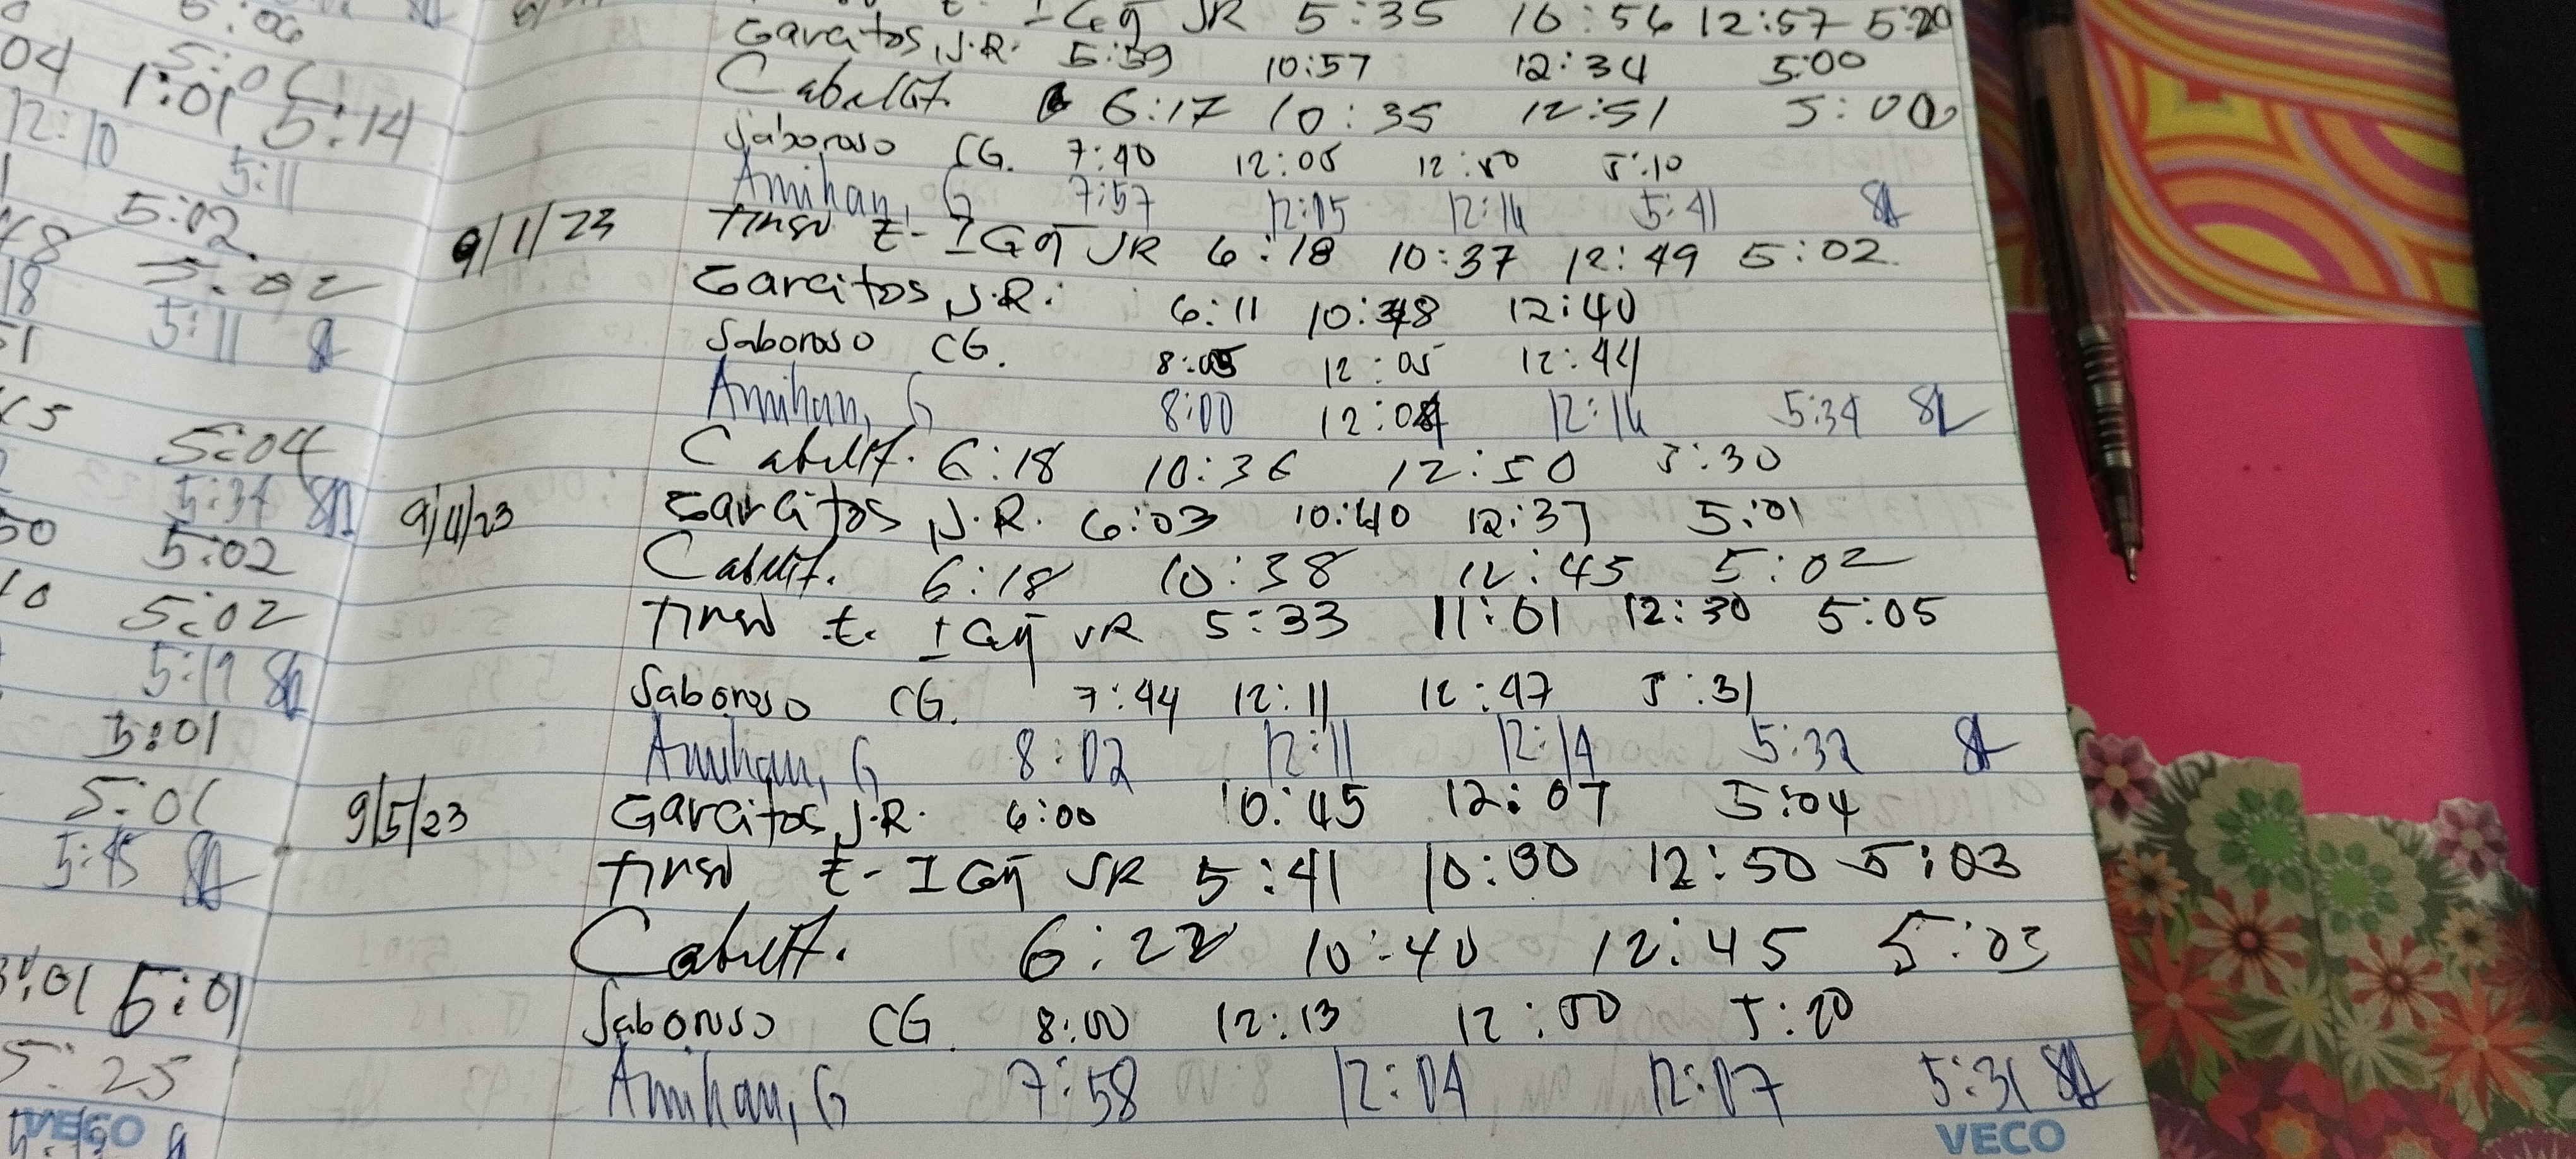 5:06
04 5:01
1:01 5:14
12:10 5:11
48 5:02
18 5:02
51 5:11
5:04
5:34
50 5:02
10 5:02
5:19
5:01
5:01
5:45
5:01
5:25
VECO
JR 5:35 10:56 12:57 5:20
Garcitos, J.R. 5:59 10:57 12:34 5:00
6:17 10:35 12:51 5:00
Saboroso CG. 7:40 12:05 12:50 5:10
Amihan, G 7:57 12:05 12:14 5:41
9/1/23 E- JR 6:18 10:37 12:49 5:02
Garcitos, J.R. 6:11 10:48 12:40
Saboroso CG. 8:05 12:05 12:44
Amihan, G 8:00 12:04 12:14 5:34
6:18 10:36 12:50 5:30
9/4/23 Garcitos, J.R. 6:03 10:40 12:37 5:01
6:18 10:38 12:45 5:02
E. JR 5:33 11:01 12:30 5:05
Saboroso CG. 7:44 12:11 12:47 5:31
Amihan, G 8:02 12:11 12:14 5:32
9/5/23 Garcitos, J.R. 6:00 10:45 12:07 5:04
E- JR 5:41 10:30 12:50 5:03
6:22 10:40 12:45 5:03
Saboroso CG. 8:00 12:13 12:50 5:20
Amihan, G 7:58 12:04 12:07 5:31
VECO